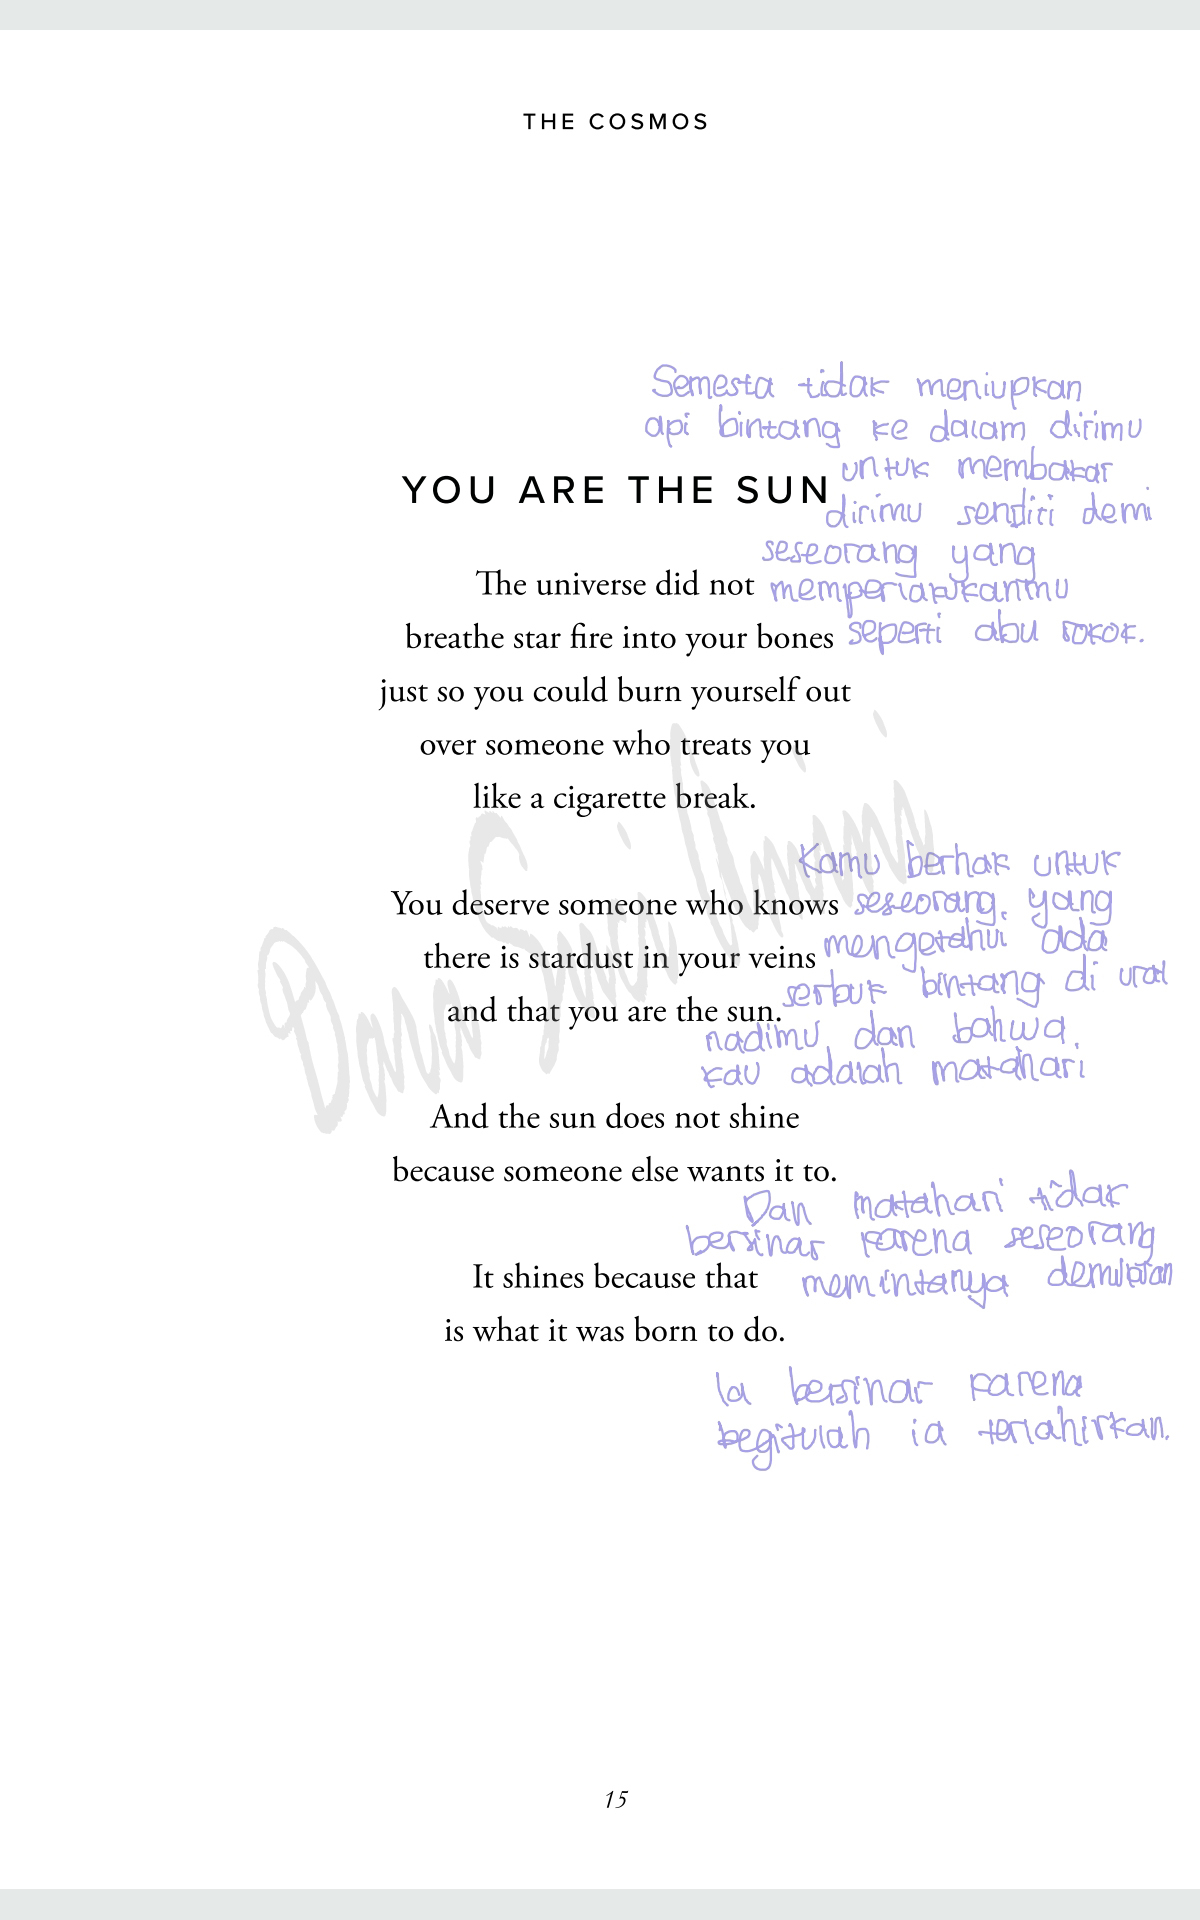 THE COSMOS
Semesta tidak meniupkan
api bintang ke dalam dirimu
untuk membakar
YOU ARE THE SUN
dirimu sendiri demi
seseorang yang
The universe did not
memperlakukanmu
breathe star fire into your bones
seperti abu rokok.
just so you could burn yourself out
over someone who treats you
like a cigarette break.
Kamu berhak untuk
You deserve someone who knows
seseorang, yang
mengetahui ada
there is stardust in your veins
serbuk bintang di urat
and that you are the sun.
nadimu, dan bahwa,
kau adalah matahari
And the sun does not shine
because someone else wants it to.
Dan matahari tidak
bersinar karena seseorang
It shines because that
memintanya demikian
is what it was born to do.
Ia bersinar karena
begitulah ia terlahirkan.
Dara Suci Umini
15